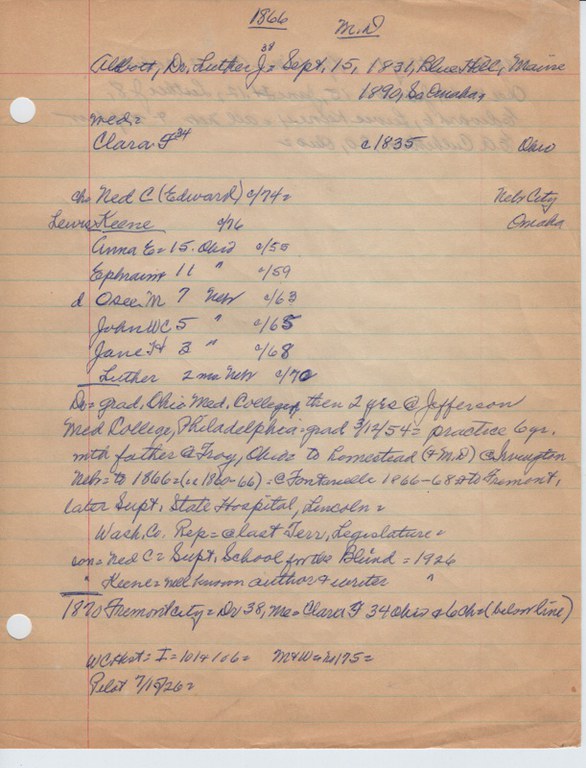 1866
M.D
38
Abbott, Dr. Luther J = Sept. 15, 1831, Blue Hill, Maine
1890, So Omaha,
med =
Clara F 34 c 1835 Ohio
ch Ned C (Edward) c/74 = Nebr City
Lewis Keene c/76 Omaha
Anna E = 15. Ohio c/55
Ephraim 11 " c/59
d Osee M 7 Nebr c/63
John WC 5 " c/65
Jane H 3 " c/68
Luther 2 mo Nebr c/70
Dr = grad, Ohio Med. College, then 2 yrs @ Jefferson
Med College, Philadelphia - grad 3/12/54 = practice 6 yr.
with father @ Troy, Ohio to homestead (+ M.D) @ Irvington
Nebr = to 1866 = (1860-66) = @ Fontanelle 1866-68 + to Fremont,
later Supt. State Hospital, Lincoln =
Wash. Co. Rep = @ last Terr. Legislature =
son = Ned C = Supt. School for the Blind = 1926
" Keene = well known author + writer "
1870 Fremont City = Dr 38, Me = Clara F 34 Ohio + 6 ch = (below line)
WC Hist = I = 101 + 106 = M + W = 175 =
Pilot 7/15/26 =